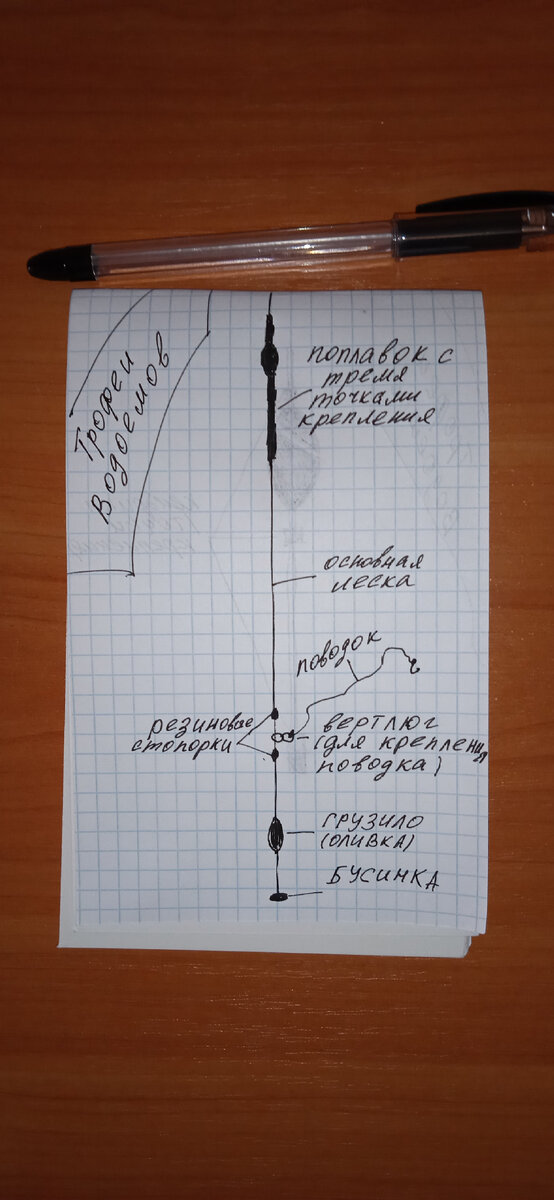 Трофеи
водоемов
поплавок с
тремя
точками
крепления
основная
леска
поводок
резиновые
стопорки
вертлюг
(для крепления
поводка)
грузило
(оливка)
бусинка